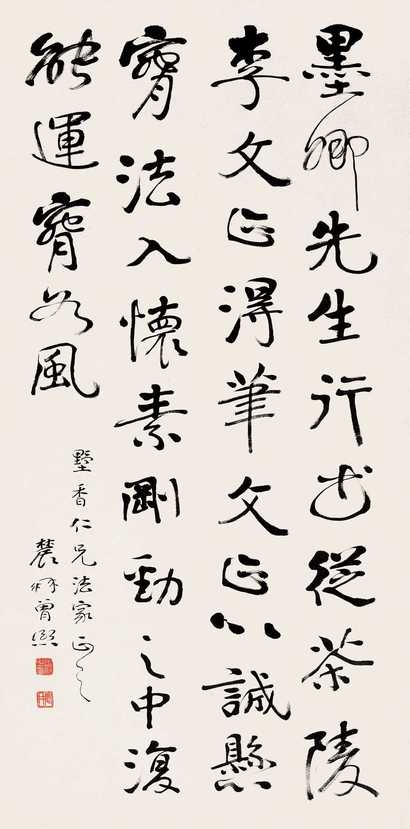 墨卿先生行書從茶陵
李文正得筆文正以誠懸
法入懷素剛勁之中復
能運風
香仁兄法家正之
農髯曾熙